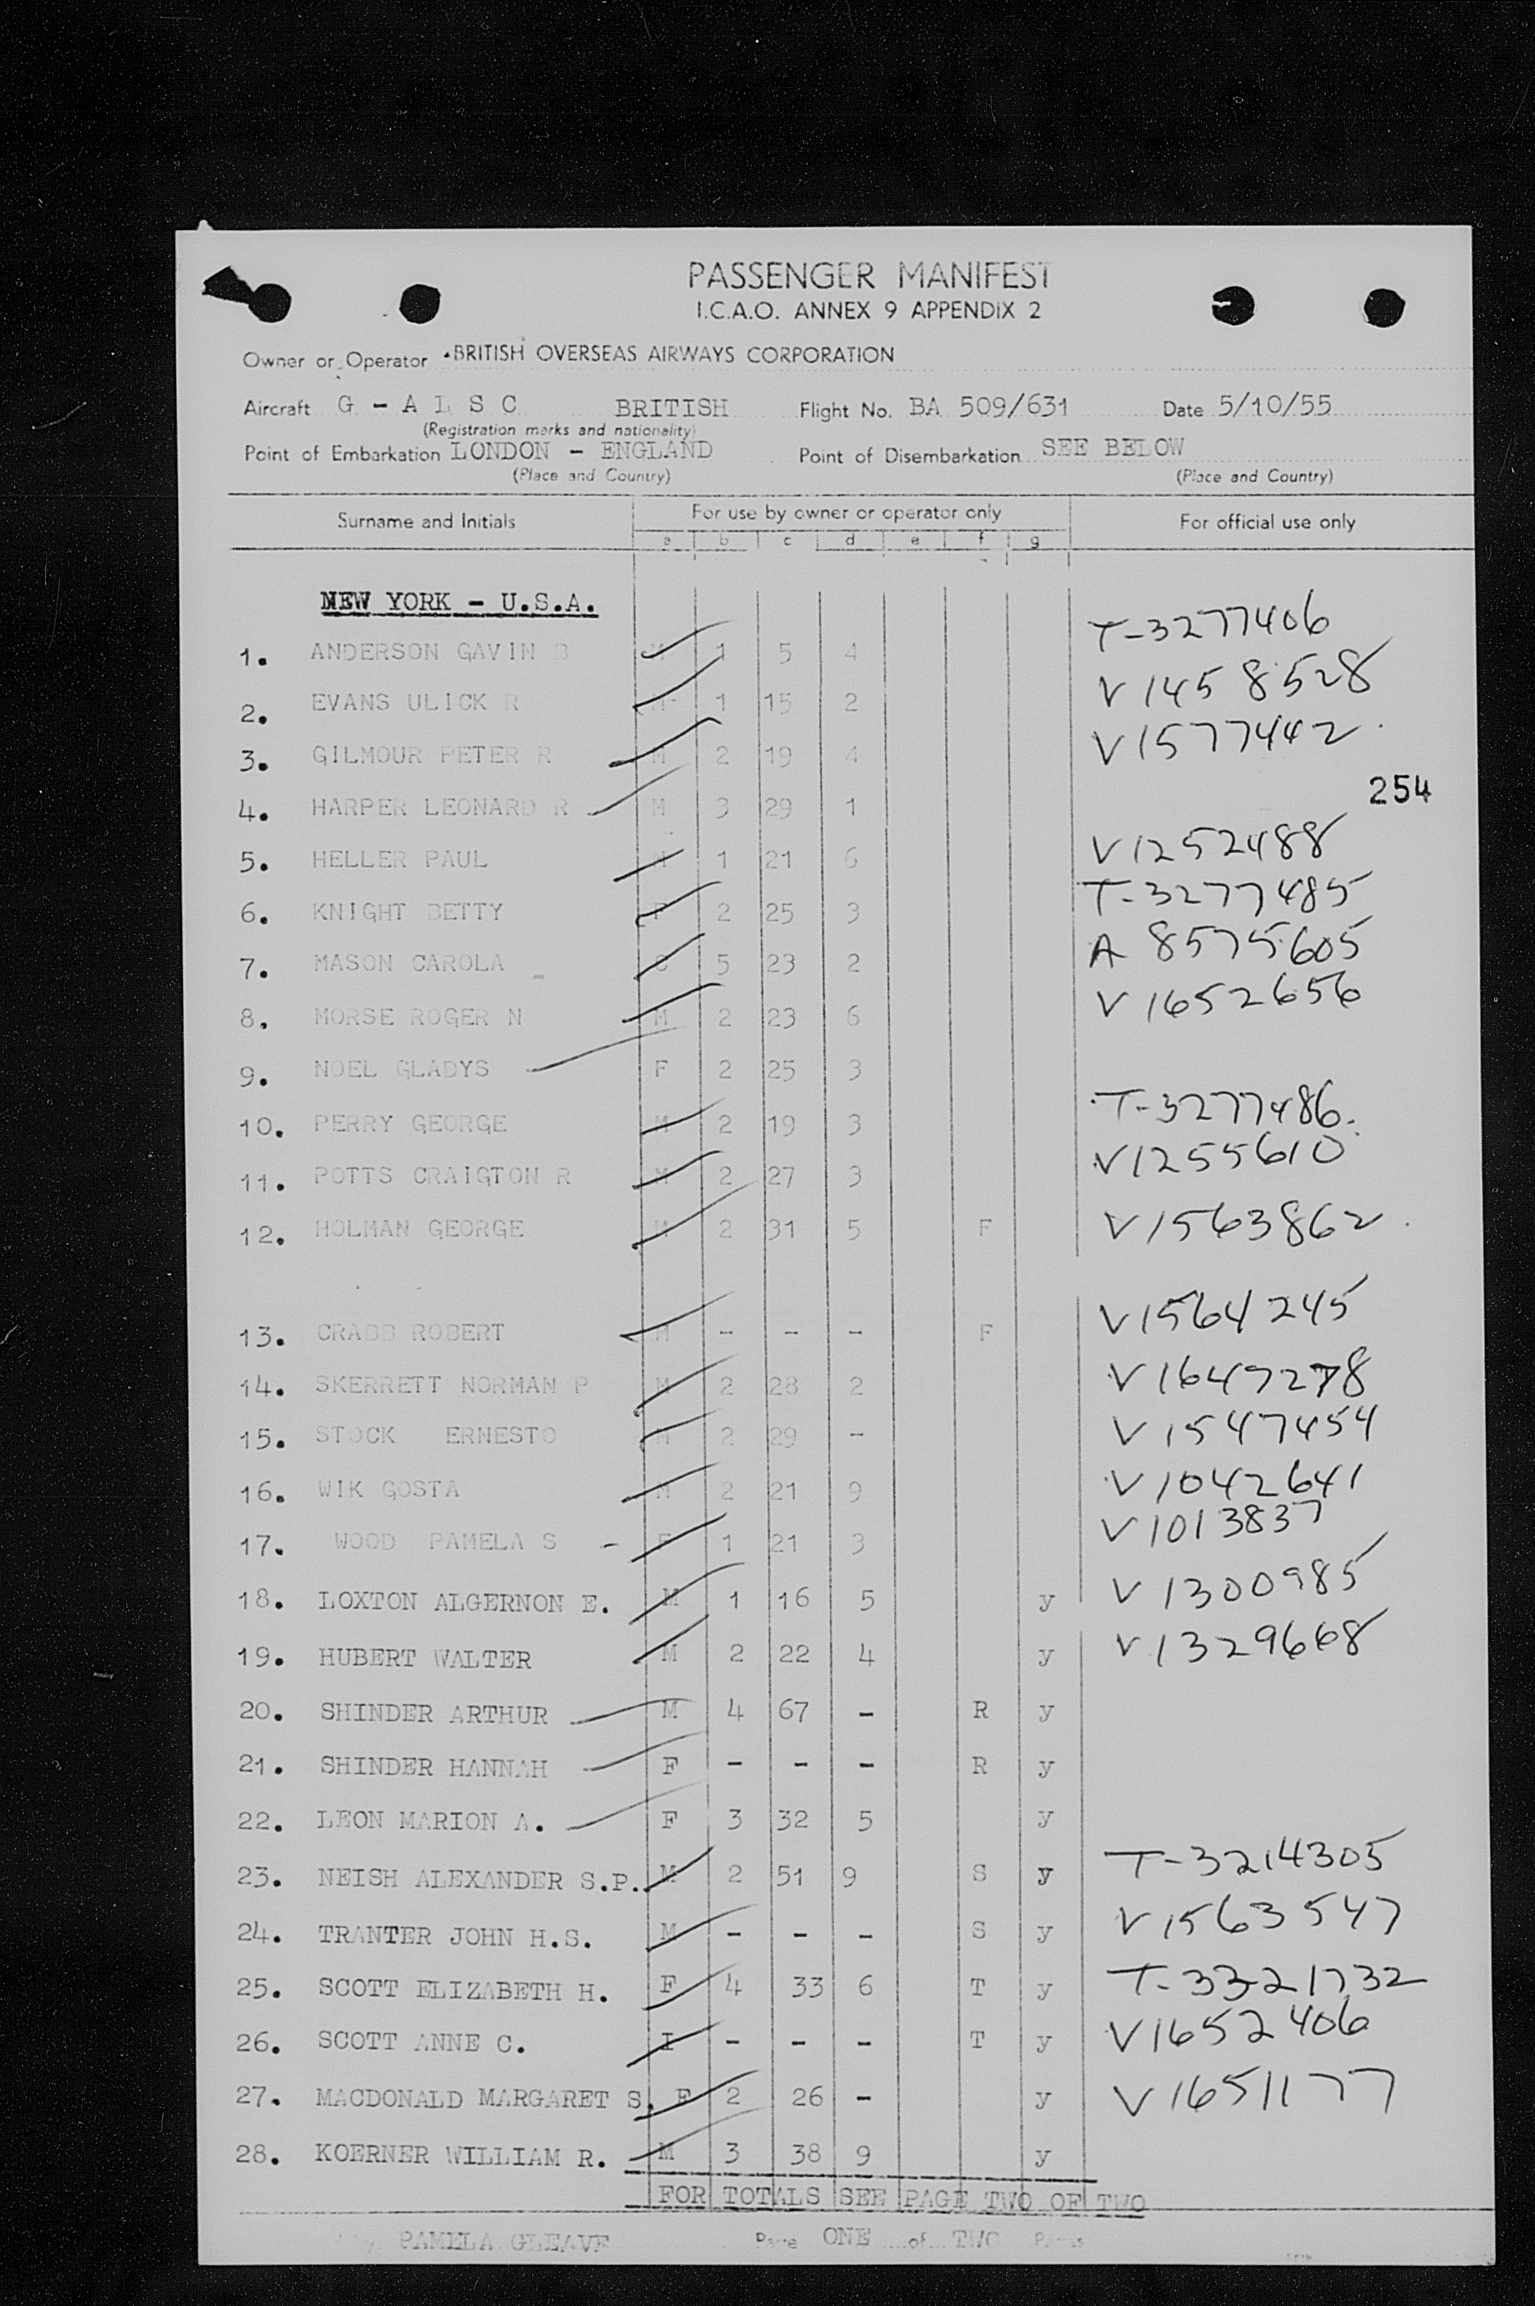 PASSENGER MANIFEST
I.C.A.O. ANNEX 9 APPENDIX 2
Owner or Operator BRITISH OVERSEAS AIRWAYS CORPORATION
Aircraft G - A L S C BRITISH Flight No. BA 509/631 Date 5/10/55
(Registration marks and nationality)
Point of Embarkation LONDON - ENGLAND Point of Disembarkation SEE BELOW
(Place and Country) (Place and Country)
Surname and Initials For use by owner or operator only For official use only
a b c d e f g
NEW YORK - U.S.A.
1. ANDERSON GAVIN B M 1 5 4 T-3277406
2. EVANS ULICK R M 1 15 2 V1458528
3. GILMOUR PETER R M 2 19 4 V1577442
254
4. HARPER LEONARD R M 3 29 1
5. HELLER PAUL M 1 21 6 V1252488
6. KNIGHT BETTY F 2 25 3 T-3277485
7. MASON CAROLA C 5 23 2 A 8575605
8. MORSE ROGER N M 2 23 6 V1652656
9. NOEL GLADYS F 2 25 3
10. PERRY GEORGE M 2 19 3 T-3277486
11. POTTS CRAIGTON R M 2 27 3 V1255610
12. HOLMAN GEORGE M 2 31 5 F V1563862
13. CRABB ROBERT M - - - F V1564245
14. SKERRETT NORMAN P M 2 28 2 V1647278
15. STOCK ERNESTO M 2 29 - V1547454
16. WIK GOSTA M 2 21 9 V1042641
17. WOOD PAMELA S - F 1 21 3 V1013837
18. LOXTON ALGERNON E. M 1 16 5 y V1300985
19. HUBERT WALTER M 2 22 4 y V1329668
20. SHINDER ARTHUR M 4 67 - R y
21. SHINDER HANNAH F - - - R y
22. LEON MARION A. F 3 32 5 y
23. NEISH ALEXANDER S.P. M 2 51 9 S y T-3214305
24. TRANTER JOHN H.S. M - - - S y V1563547
25. SCOTT ELIZABETH H. F 4 33 6 T y T-3321732
26. SCOTT ANNE C. I - - - T y V1652406
27. MACDONALD MARGARET S. F 2 26 - y V1651177
28. KOERNER WILLIAM R. M 3 38 9 y
FOR TOTALS SEE PAGE TWO OF TWO
PAMELA GLEAVE Page ONE of TWO Pages